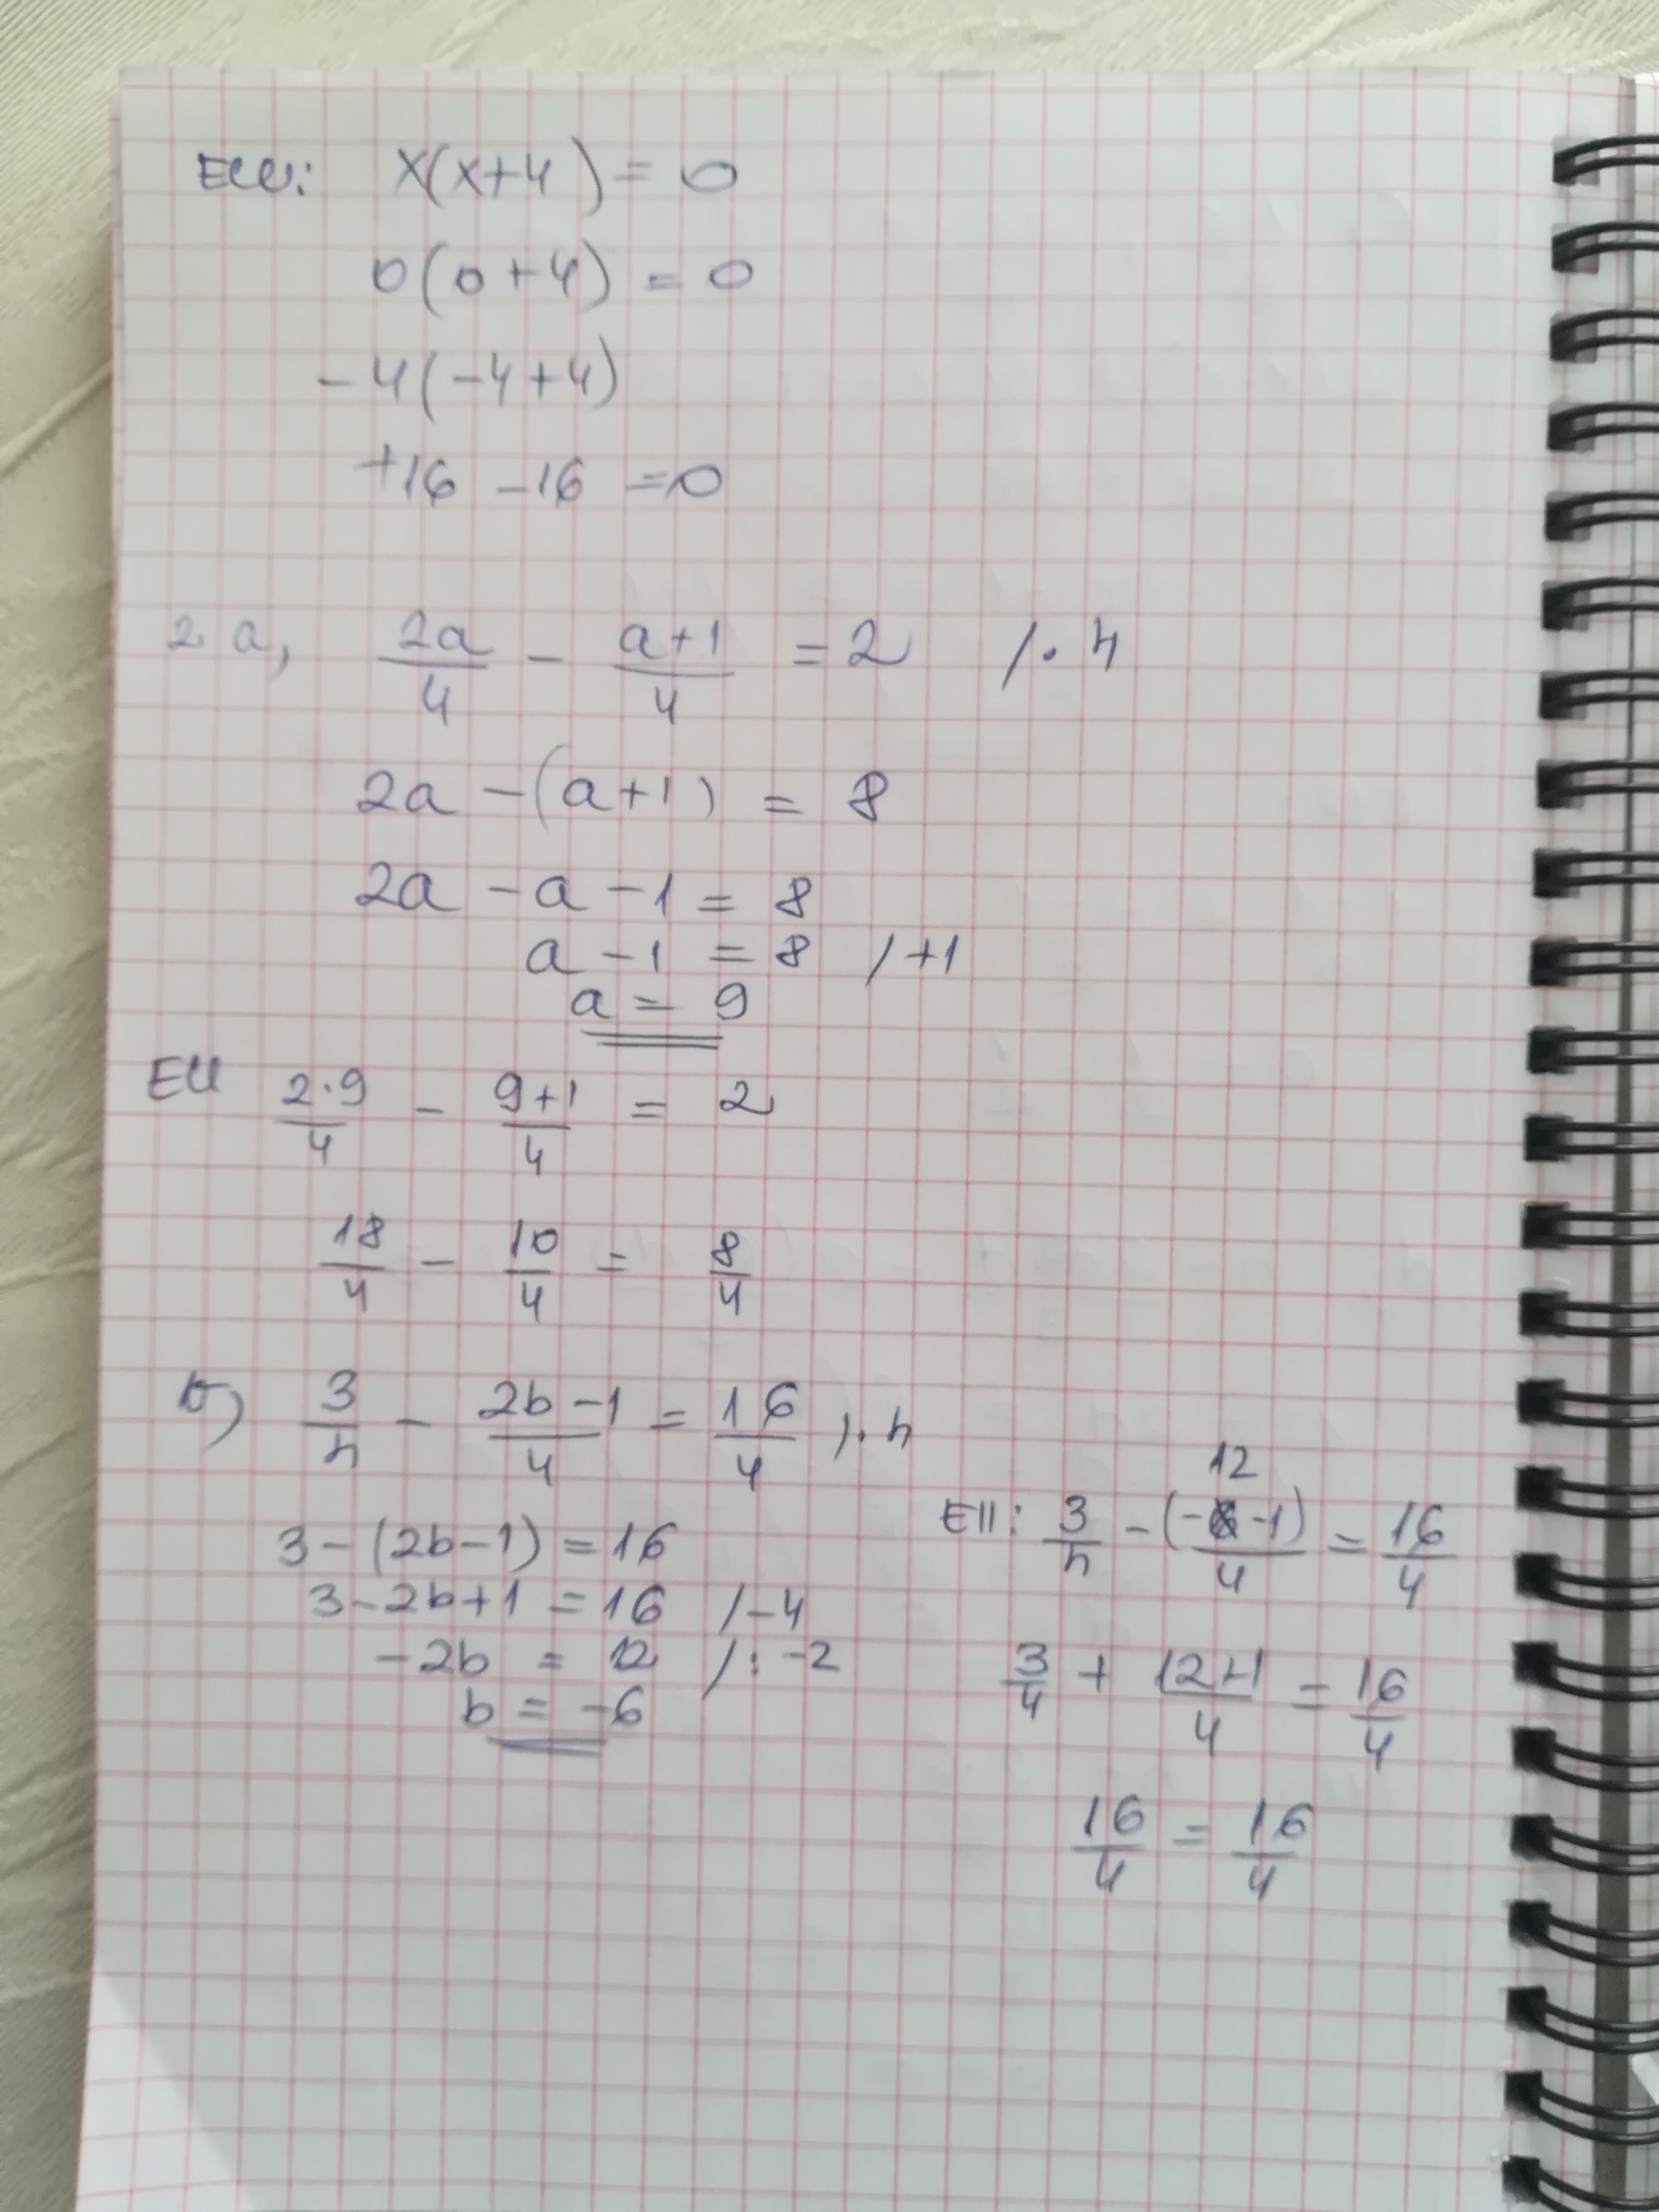 Ell: x(x+4) = 0
0(0+4) = 0
-4(-4+4)
+16 -16 = 0
2 a, 2a/4 - a+1/4 = 2 /·4
2a -(a+1) = 8
2a - a - 1 = 8
a - 1 = 8 /+1
a = 9
Ell 2·9/4 - 9+1/4 = 2
18/4 - 10/4 = 8/4
b) 3/4 - 2b-1/4 = 16/4 /·4
3-(2b-1) = 16
3-2b+1 = 16 /-4
-2b = 12 /: -2
b = -6
Ell: 3/4 - (-12-1)/4 = 16/4
3/4 + 12+1/4 = 16/4
16/4 = 16/4